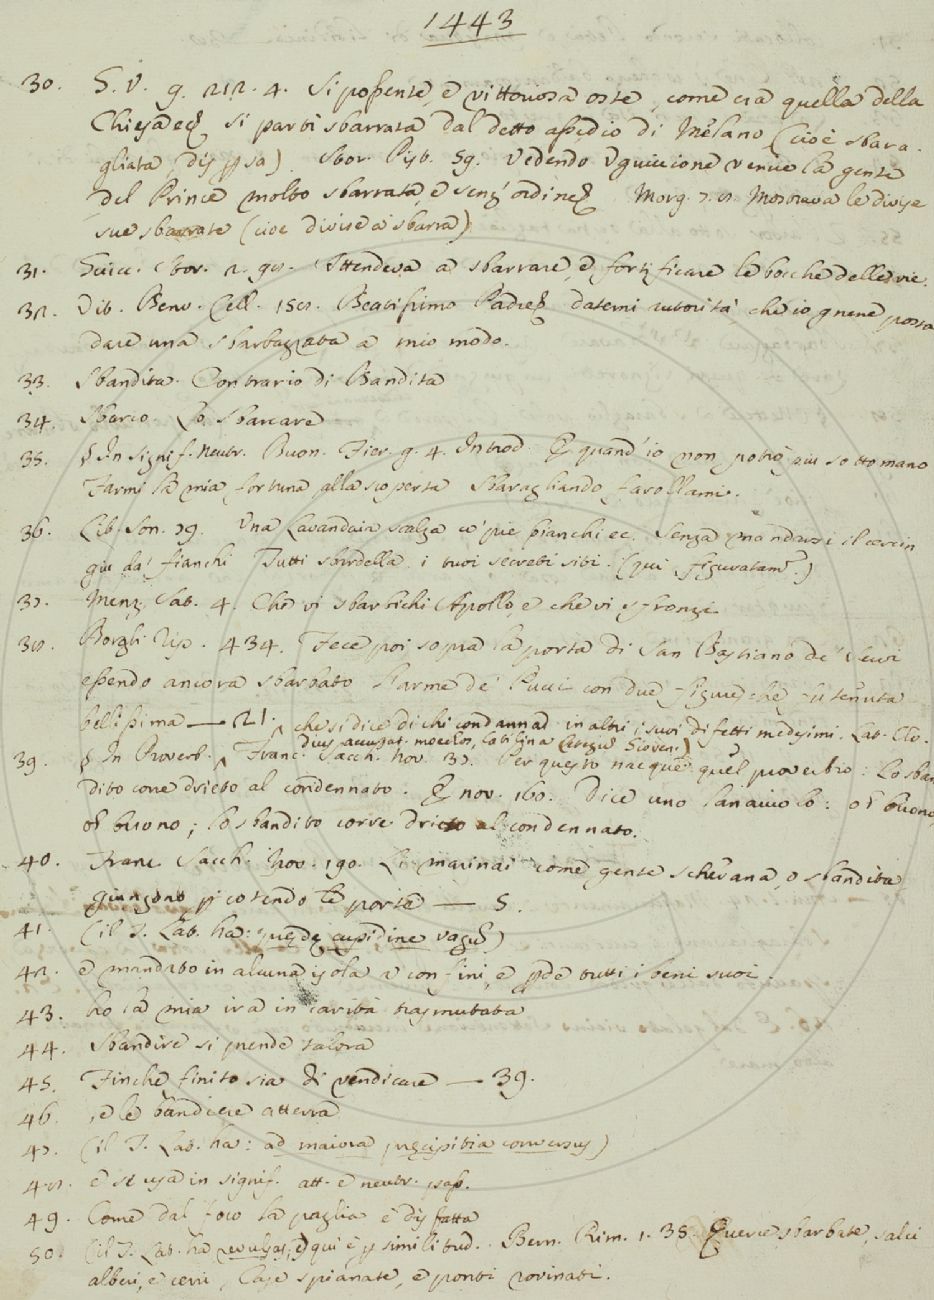 1443
30. G. V. 9. 212. 4. Sì possente, e vittoriosa oste, come era quella della
Chiesa ec. si partì sbarrata dal detto assedio di Melano (cioè sbara-
gliata, dispersa). Stor. Pist. 59. Vedendo Uguiccione venire la gente
del Prince molto sbarrata, e senz' ordine. Morg. 7. 8. Mostrava le divise
sue sbarrate (cioè divise a sbarra)
31. Guicc. Stor. 2. 98. Attendeva a sbarrare, e fortificare le bocche delle vie.
32. Vit. Benv. Cell. 158. Beatissimo Padre datemi autorità, che io gnene possa
dare una sbarbazzata a mio modo.
33. Sbandita. Contrario di Bandita
34. Sbarco. Lo sbarcare
35. § In signif. neutr. Buon. Fier. 9. 4. Introd. E quand' io non potrò più sottomano
Farmi la mia fortuna alla scoperta Sbaragliando farollami.
36. Lib. Son. 79. Una Lavandaia scalza co' piè bianchi ec. Senza mandarsi il
gue da' fianchi Tutti sbardella i tuoi secreti siti. (qui figuratam.)
37. Menz. Sat. 4. Che vi sbarbichi Apollo, e che vi sfronzi
38. Borgh. Rip. 434. Fece poi sopra la porta di San Bastiano de' Servi
essendo ancora sbarbato l'arme de' Pucci con due figure, che fu tenuta
bellissima — 21. che si dice di chi condanna in altri i suoi difetti medesimi. Lat.
39. § In Proverb. Franc. Sacch. nov. 37. Per questo nacque quel proverbio: Lo sban
dito corre drieto al condennato. E nov. 160. Dice uno lanaiuolo: o è buono,
o è buono; lo sbandito corre drieto al condennato.
40. Franc. Sacch. Nov. 190. Li marinai come gente scherana, o sbandita
giungono percotendo le porte — 5.
41. (il T. Lat. ha: cupidine vagus)
42. è mandato in alcuna isola a confini, e perde tutti i beni suoi.
43. ho la mia ira in carità trasmutata
44. Sbandire si prende talora
45. Finchè finito sia di vendicare — 39.
46. , e le bandiere atterra
47. (il T. Lat. ha: ad maiora præcipitia conversus)
48. e si usa in signif. att. e neutr. pass.
49. Come dal foco la paglia è disfatta
50. (il T. Lat. ha e qui è per similitud. Bern. Rim. 1. 35. Querce sbarbate, salci
alberi, e cerri, Case spianate, e ponti rovinati.